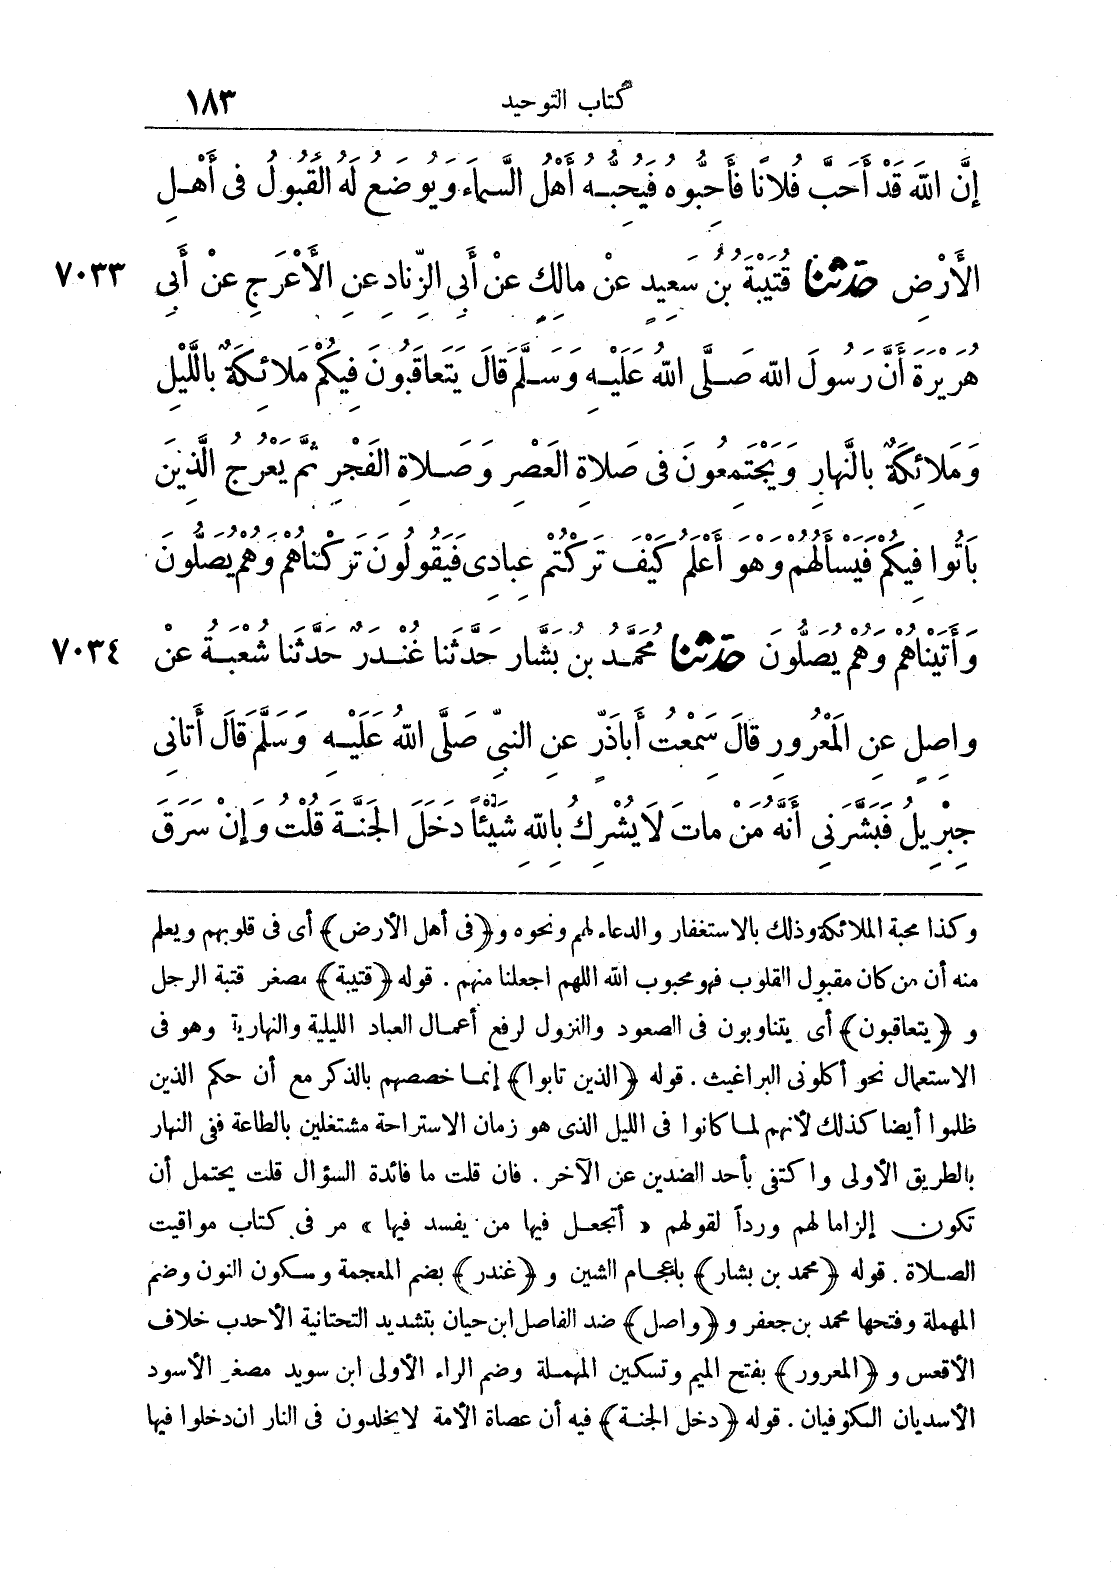 كتاب التوحيد ١٨٣
إِنَّ اللّٰهَ قَدْ أَحَبَّ فُلَانًا فَأَحِبُّوهُ فَيُحِبُّهُ أَهْلُ السَّمَاءِ وَيُوضَعُ لَهُ الْقَبُولُ فِى أَهْلِ
الْأَرْضِ حَدَّثَنَا قُتَيْبَةُ بْنُ سَعِيدٍ عَنْ مَالِكٍ عَنْ أَبِى الزِّنَادِ عَنِ الْأَعْرَجِ عَنْ أَبِى ٧٠٣٣
هُرَيْرَةَ أَنَّ رَسُولَ اللّٰهِ صَلَّى اللّٰهُ عَلَيْهِ وَسَلَّمَ قَالَ يَتَعَاقَبُونَ فِيكُمْ مَلَائِكَةٌ بِاللَّيْلِ
وَمَلَائِكَةٌ بِالنَّهَارِ وَيَجْتَمِعُونَ فِى صَلَاةِ الْعَصْرِ وَصَلَاةِ الْفَجْرِ ثُمَّ يَعْرُجُ الَّذِينَ
بَاتُوا فِيكُمْ فَيَسْأَلُهُمْ وَهْوَ أَعْلَمُ كَيْفَ تَرَكْتُمْ عِبَادِى فَيَقُولُونَ تَرَكْنَاهُمْ وَهُمْ يُصَلُّونَ
وَأَتَيْنَاهُمْ وَهُمْ يُصَلُّونَ حَدَّثَنَا مُحَمَّدُ بْنُ بَشَّارٍ حَدَّثَنَا غُنْدَرٌ حَدَّثَنَا شُعْبَةُ عَنْ ٧٠٣٤
وَاصِلٍ عَنِ الْمَعْرُورِ قَالَ سَمِعْتُ أَبَاذَرٍّ عَنِ النَّبِىِّ صَلَّى اللّٰهُ عَلَيْهِ وَسَلَّمَ قَالَ أَتَانِى
جِبْرِيلُ فَبَشَّرَنِى أَنَّهُ مَنْ مَاتَ لَا يُشْرِكُ بِاللّٰهِ شَيْئًا دَخَلَ الْجَنَّةَ قُلْتُ وَإِنْ سَرَقَ
وكذا محبة الملائكة وذلك بالاستغفار والدعاء لهم ونحوه و﴿فى أهل الأرض﴾ أى فى قلوبهم ويعلم
منه أن من كان مقبول القلوب فهو محبوب الله اللهم اجعلنا منهم . قوله ﴿قتيبة﴾ مصغر قتبة الرجل
و ﴿يتعاقبون﴾ أى يتناوبون فى الصعود والنزول لرفع أعمال العباد الليلية والنهارية وهو فى
الاستعمال نحو أكلونى البراغيث . قوله ﴿الذين تابوا﴾ إنما خصصهم بالذكر مع أن حكم الذين
ظلموا أيضا كذلك لأنهم لما كانوا فى الليل الذى هو زمان الاستراحة مشتغلين بالطاعة ففى النهار
بالطريق الأولى واكتفى بأحد الضدين عن الآخر . فان قلت ما فائدة السؤال قلت يحتمل أن
تكون إلزاما لهم ورداً لقولهم « أتجعل فيها من يفسد فيها » مر فى كتاب مواقيت
الصلاة . قوله ﴿محمد بن بشار﴾ باعجام الشين و ﴿غندر﴾ بضم المعجمة وسكون النون وضم
المهملة وفتحها محمد بن جعفر و ﴿واصل﴾ ضد الفاصل ابن حيان بتشديد التحتانية الأحدب خلاف
الأقعس و ﴿المعرور﴾ بفتح الميم وتسكين المهملة وضم الراء الأولى ابن سويد مصغر الأسود
الأسديان الكوفيان . قوله ﴿دخل الجنة﴾ فيه أن عصاة الأمة لا يخلدون فى النار ان دخلوا فيها